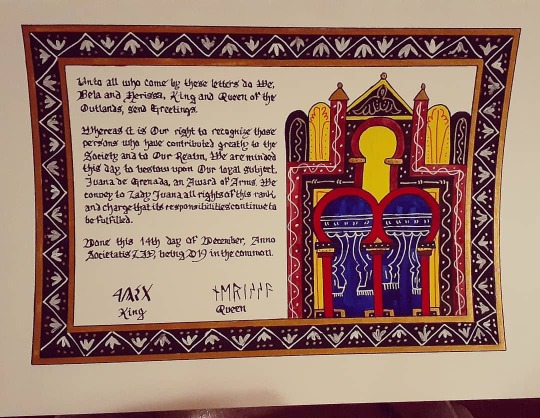 Unto all who come by these letters do We,
Bela and Nerissa, King and Queen of the
Outlands, send Greetings.
Whereas it is Our right to recognize those
persons who have contributed greatly to the
Society and to Our Realm, We are minded
this day to bestow upon Our loyal subject,
Juana de Grenada, an Award of Arms. We
convey to Lady Juana all rights of this rank
and charge that its responsibilities continue to
be fulfilled.
Done this 14th day of December, Anno
Societatis LIV, being 2019 in the common.
King Queen